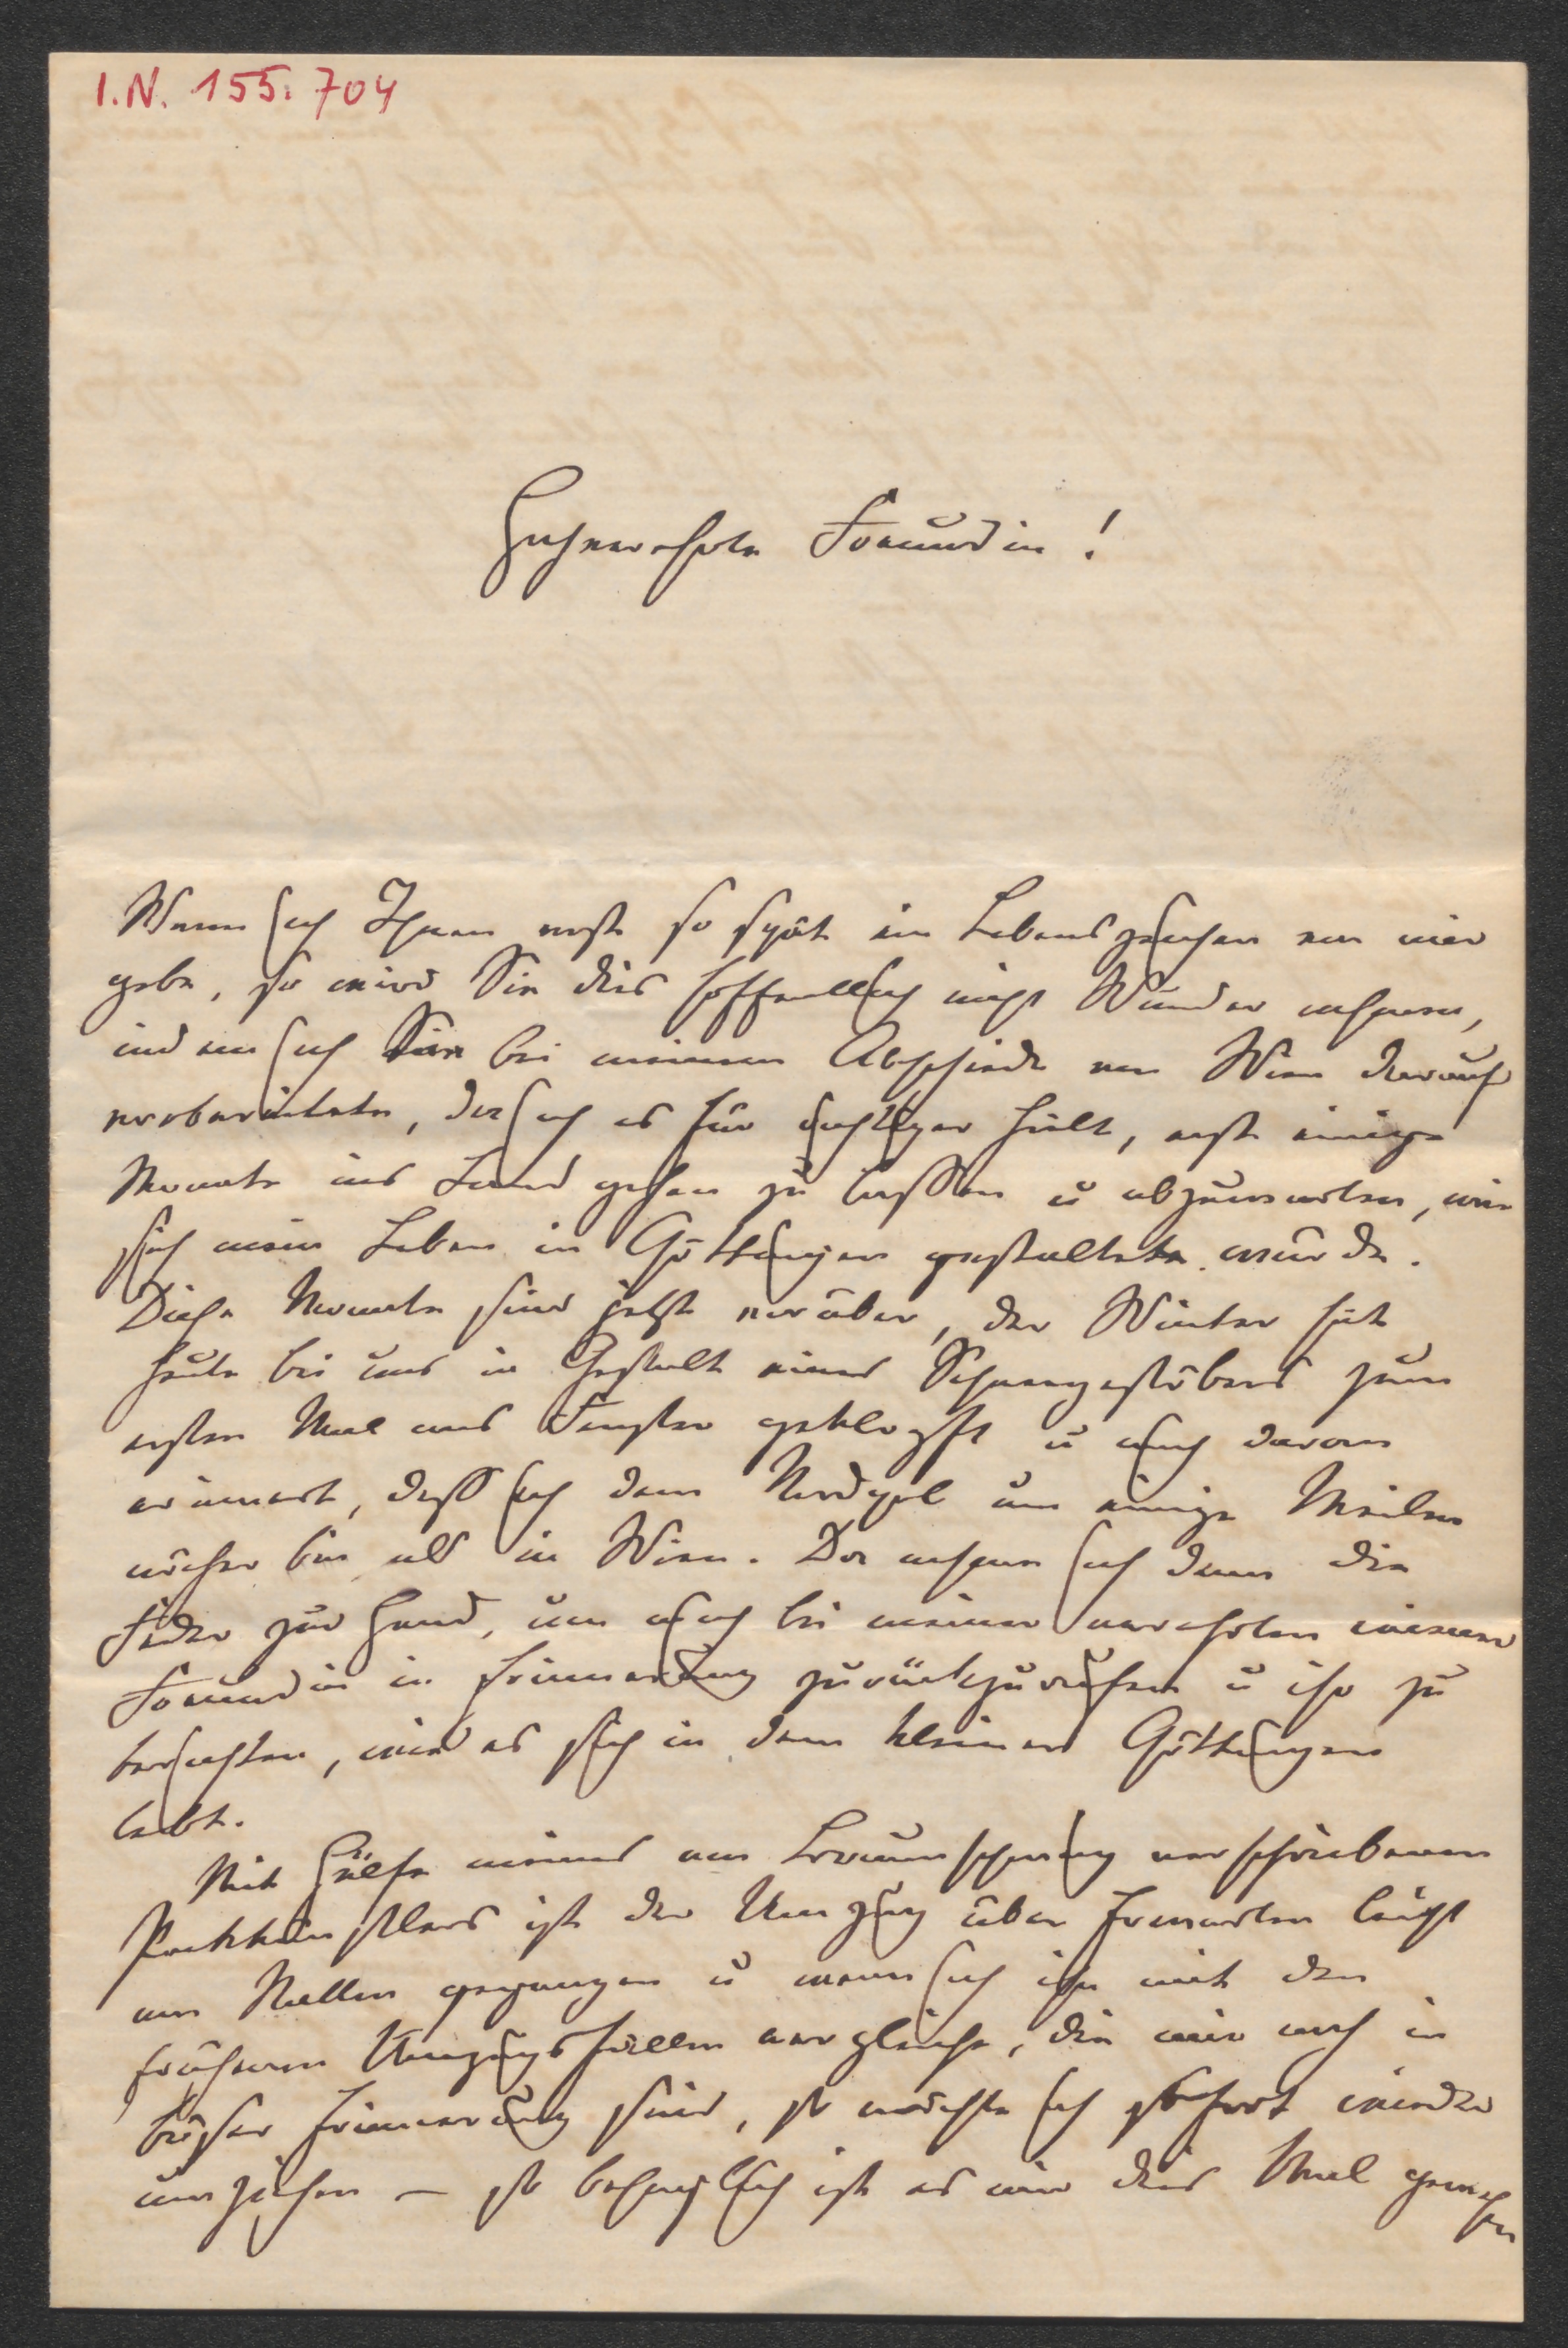 I.N. 155.704
Hochverehrte Freundin!
Wenn ich Ihnen erst so spät ein Lebenszeichen von mir
gebe, so wird Sie dies hoffentlich nicht Wunder nehmen,
indem ich Sie bei meinem Abschiede von Wien darauf
vorbereitete, daß ich es für richtiger hielt, erst einige
Monate ins Land gehen zu lassen u abzuwarten, wie
sich mein Leben in Göttingen gestalten würde.
Diese Monate sind jetzt vorüber, der Winter hat
heute bei uns in Gestalt eines Schneegestöbers zum
ersten Mal ans Fenster geklopft u mich daran
erinnert, dass ich dem Nordpol um einige Meilen
näher bin als in Wien. Da nehme ich denn die
Feder zur Hand, um mich bei meiner verehrten Wiener
Freundin in Erinnerung zurückzurufen u ihr zu
berichten, wie es sich in dem kleinen Göttingen
lebt.
Mit Hülfe meines von Braunschweig verschriebenen
Packkünstlers ist der Umzug über Erwarten leicht
von Statten gegangen u wenn ich ihn mit den
früheren Umzugs vergleiche, die mir noch in
böser Erinnerung sind, so möchte ich sofort wieder
umziehen – so behaglich ist es mir dies Mal gewesen